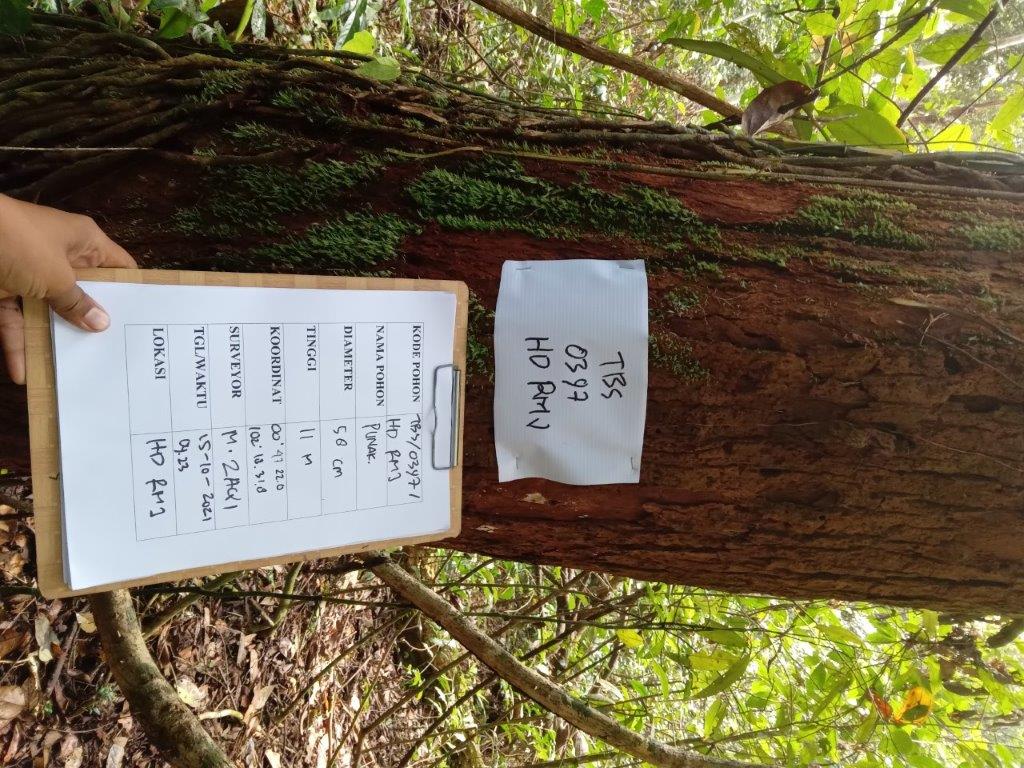 TBS
0397
HD RMJ
KODE POHON TBS/0397/
HD RMJ
NAMA POHON PUNAK.
DIAMETER 58 cm
TINGGI 11 M
KOORDINAT 00° 47 22.0
102° 18.31.8
SURVEYOR M. ZAQI
TGL/WAKTU 15-10-2021
09.23
LOKASI HD RMJ